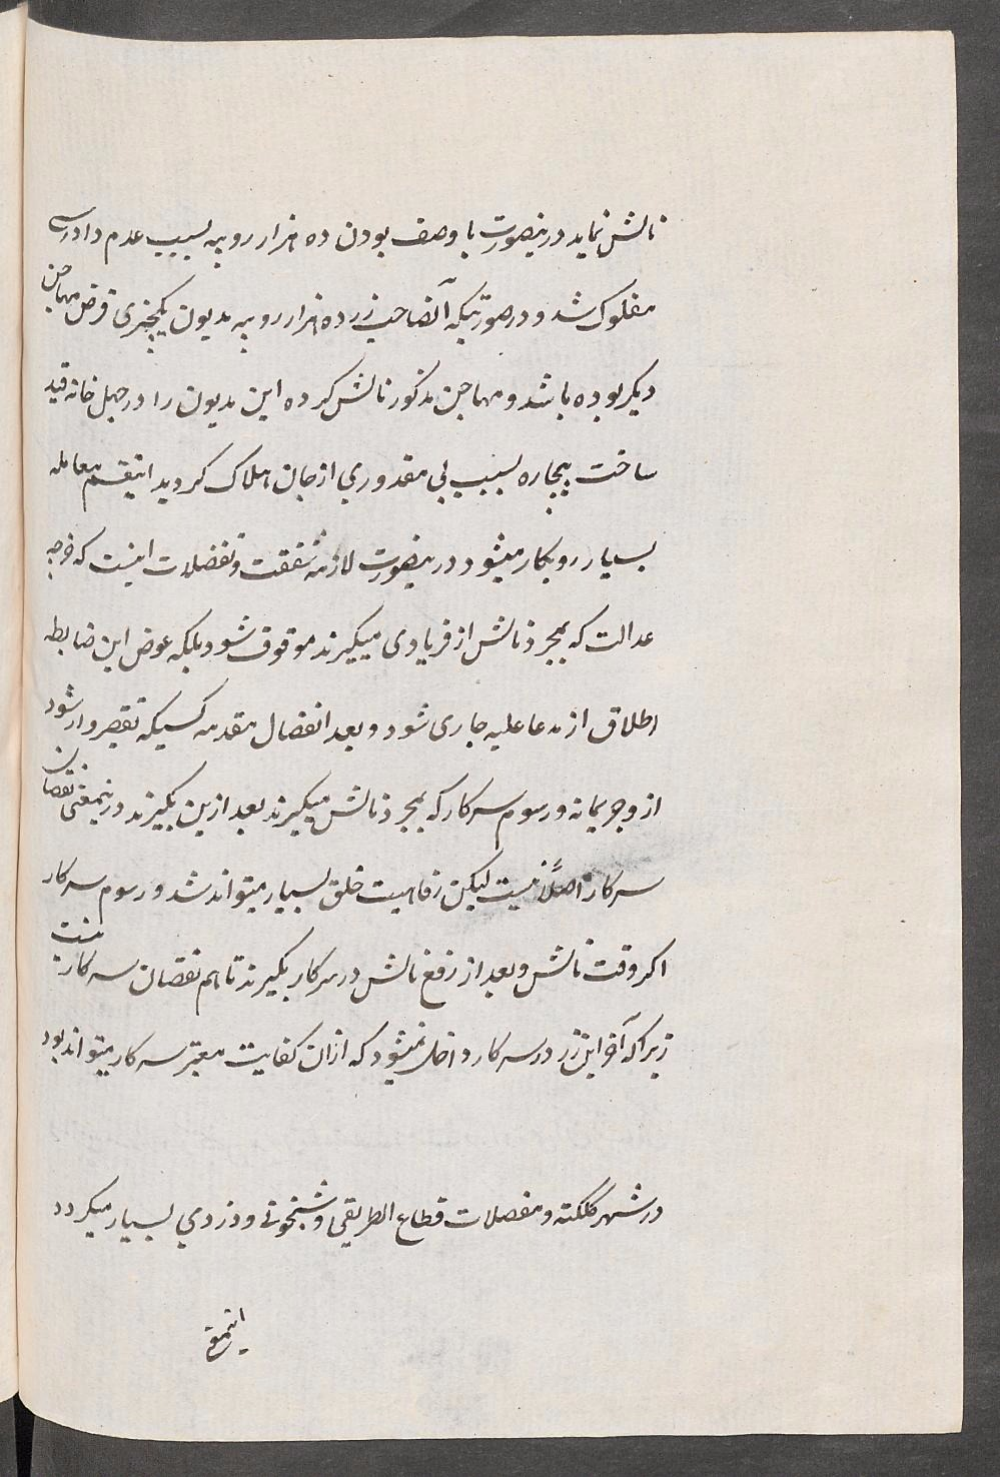 نالش نماید درینصورت با وصف بودن ده هزار روپیه بسبب عدم دادرسی
مفلوک شد و در صورتیکه آنصاحب زر ده هزار روپیه مدیون یکچیزی قرض مهاجن
دیکر بوده باشد و مهاجن مذکور نالش کرده این مدیون را در جهل خانه قید
ساخت بیچاره بسبب بی مقدوری از جان هلاک کردید اینقسم معامله
بسیار روبکار میشود درینصورت لازمه شفقت و تفضلات اینست که خرجه
عدالت که بمجرد نالش از فریادی میکیرند موقوف شود بلکه عوض این ضابطه
اطلاق از مدعاعلیه جاری شود و بعد انفصال مقدمه کسیکه تقصیروار شود
از وجریمانه و رسوم سرکار که بمجرد نالش میکیرند بعد ازین بکیرند درینمعنی نقصان
سرکار اصلاً نیست لیکن رفاهیت خلق بسیار میتواند شد و رسوم سرکار
اکر وقت نالش و بعد از رفع نالش در سرکار بکیرند تا هم نقصان سرکار نیست
زیراکه آخر این زر در سرکار داخل نمیشود که ازان کفایت معتبر سرکار میتواند بود
در شهر کلکته و مفصلات قطاع الطریقی و شبخونی و دزدی بسیار میکردد
اینمعنی